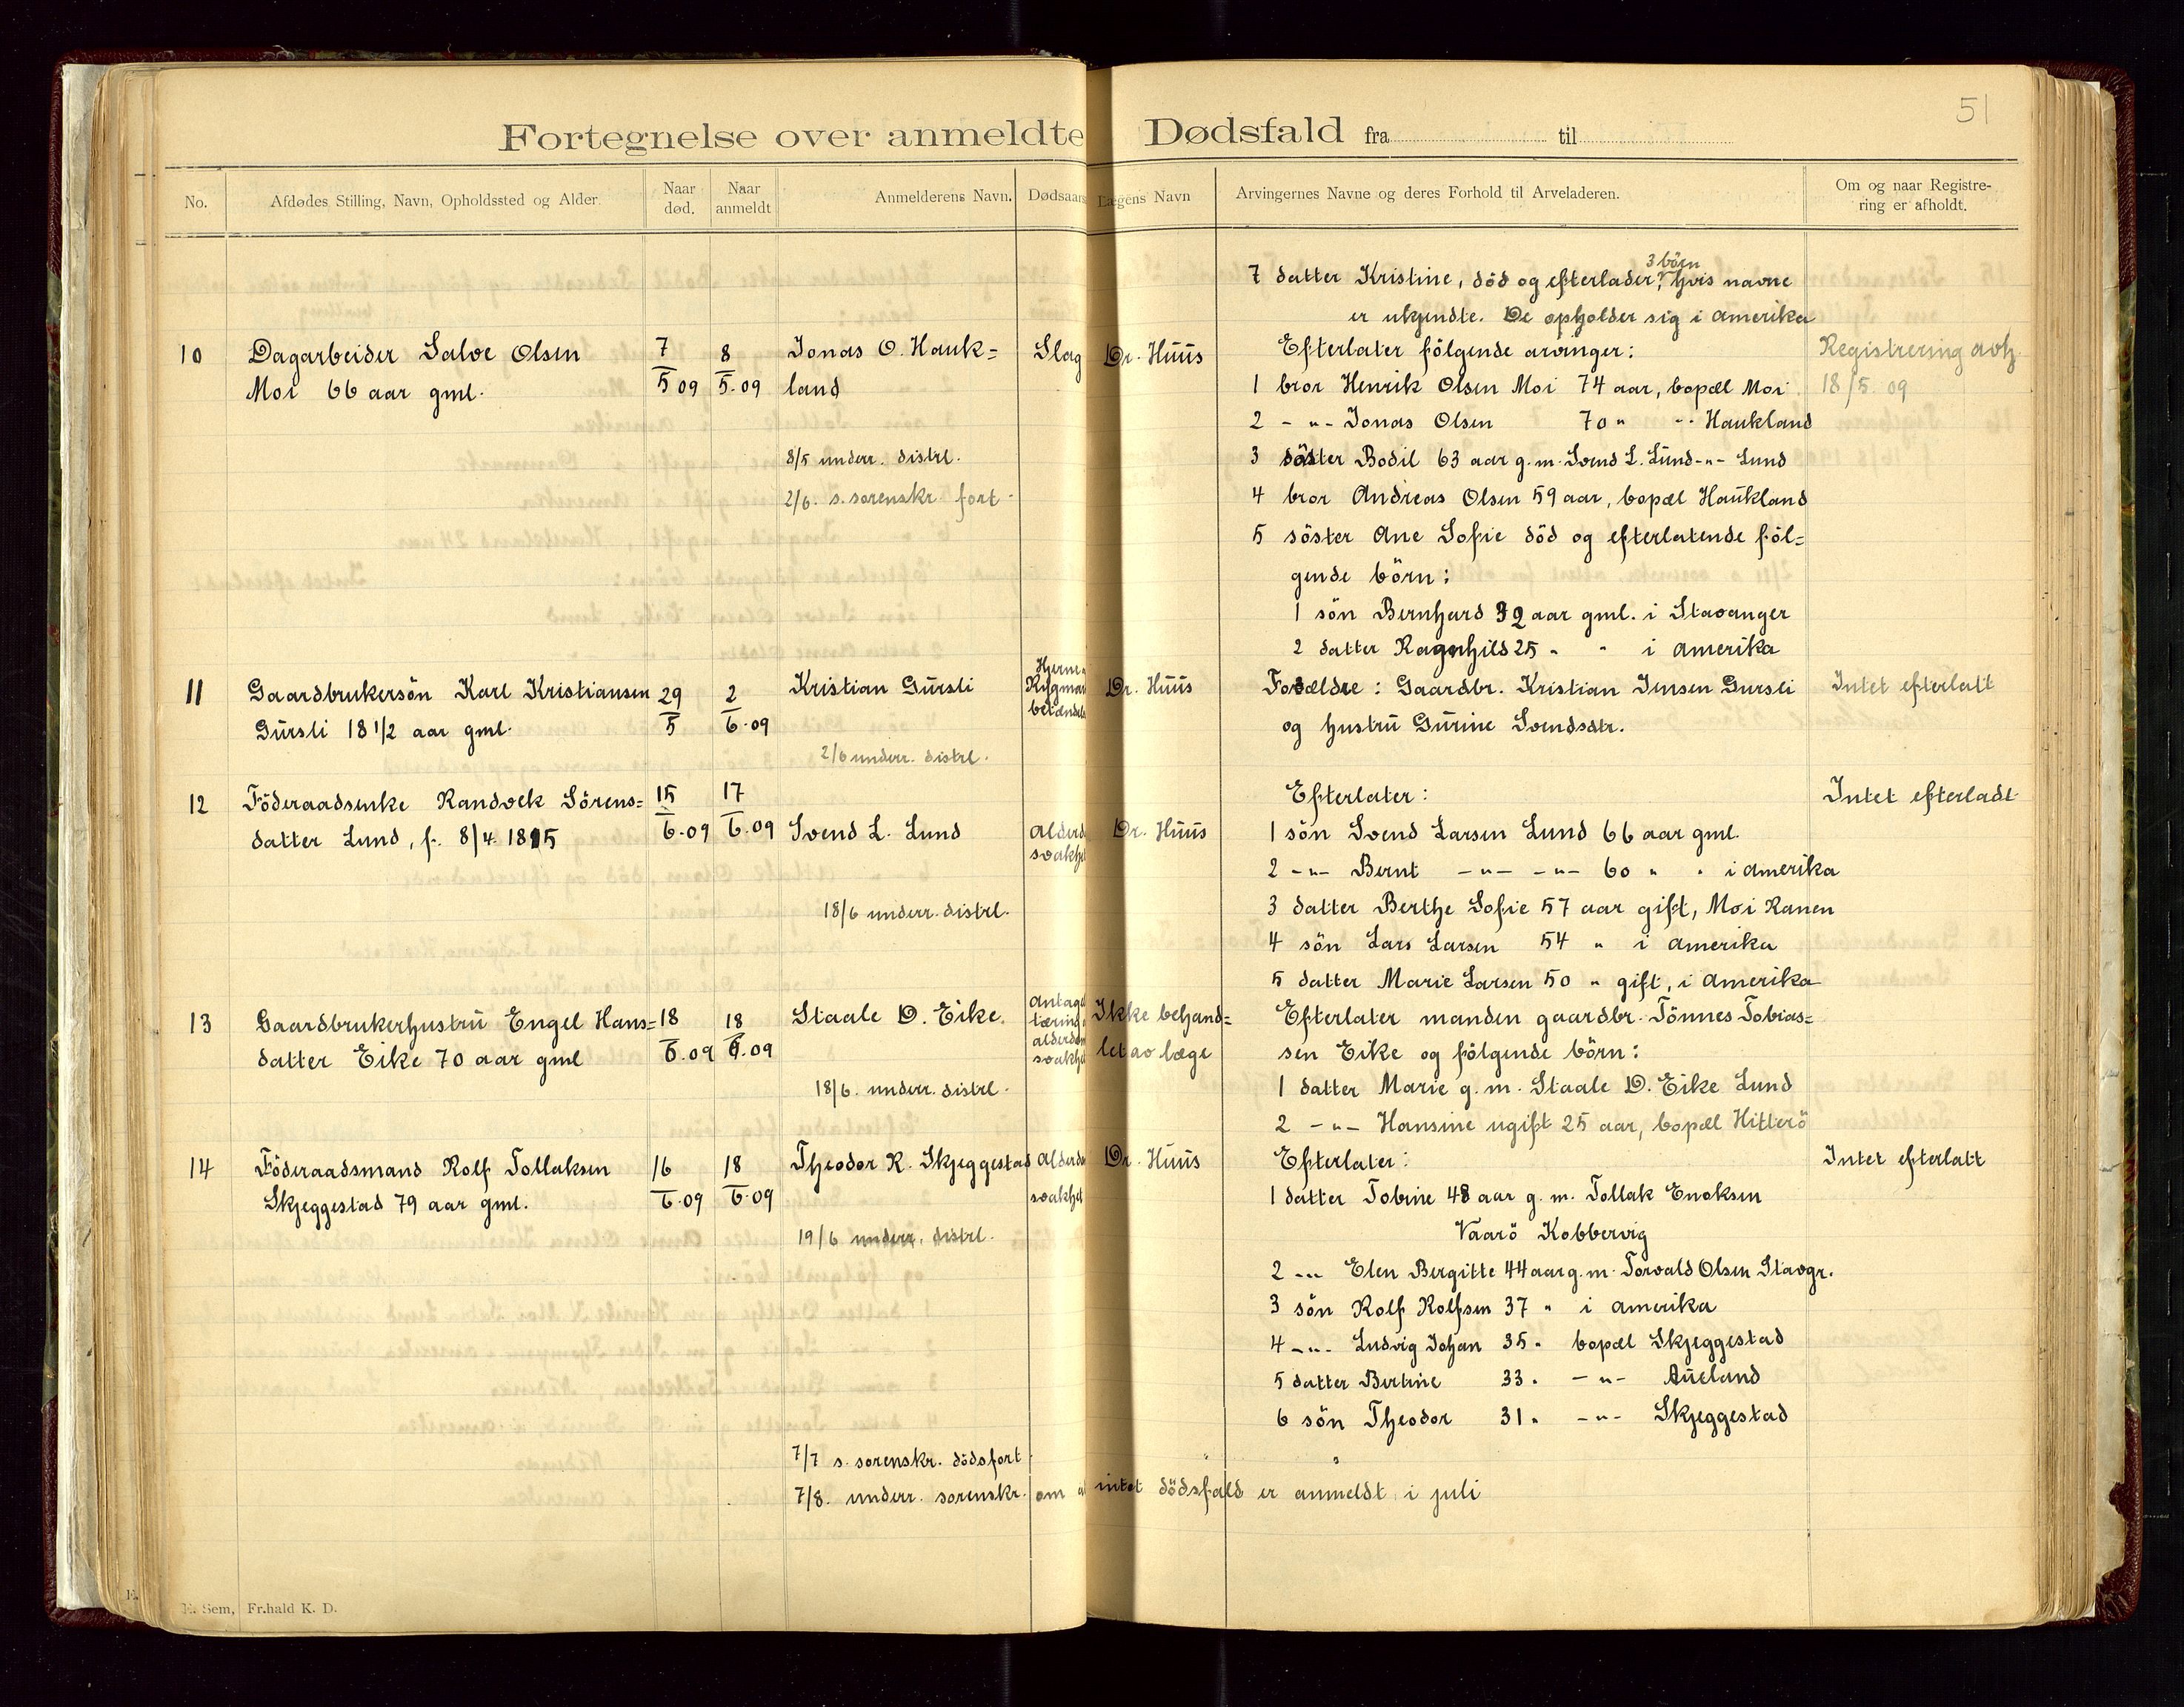 51
Fortegnelse over anmeldte Dødsfald fra til
No. Afdødes Stilling, Navn, Opholdssted og Alder. Naar død. Naar anmeldt Anmelderens Navn. Dødsaars Lægens Navn Arvingernes Navne og deres Forhold til Arveladeren. Om og naar Registrering er afholdt.
3 börn
7 datter Kristine, död og efterlader, hvis navne
er ukjendte. De opholder sig i Amerika
10 Dagarbeider Salve Olsen 7/5 09 8/5. 09 Jonas O. Hauk= Slag Dr. Huus Efterlater fölgende arvinger: Registrering avh.
Moi 66 aar gml. land 1 bror Henrik Olsen Moi 74 aar, bopæl Moi 18/5. 09
2 - " - Jonas Olsen 70 " " Haukland
8/5 underr. distrl. 3 söster Bodil 63 aar g.m. Svend L. Lund -"- Lund
2/6. s. sorenskr. fort. 4 bror Andreas Olsen 59 aar, bopæl Haukland
5 söster Ane Sofie död og efterlatende föl=
gende börn:
1 sön Bernhard 32 aar gml. i Stavanger
2 datter Ragnhild 25 " " i Amerika
11 Gaardbrukersön Karl Kristiansen 29/5 2/6.09 Kristian Gursli Hjerne Rygmar betændels Dr. Huus Forældre: Gaardbr. Kristian Jensen Gursli Intet efterlatt
Gursli 18 1/2 aar gml. og hustru Gurine Svendsdtr.
2/6 underr. distrl.
12 Föderaadsenke Randvek Sörens= 15/6.09 17/6.09 Efterlater: Intet efterladt
datter Lund, f. 8/4. 1815 Svend L. Lund Alderd svakhe Dr. Huus 1 sön Svend Larsen Lund 66 aar gml.
2 -"- Bernt -"- -"- 60 " " i Amerika
18/6 underr. distrl. 3 datter Berthe Sofie 57 aar gift, Moi Ranen
4 sön Lars Larsen 54 " i Amerika
5 datter Marie Larsen 50 " gift, i Amerika
13 Gaardbrukerhustru Engel Hans= 18/6.09 18/6.09 Staale D. Eike. Antage tæring alderdom svakhe Ikke behand= Efterlater manden gaardbr. Tönnes Tobias=
datter Eike 70 aar gml let av læge sen Eike og fölgende börn:
18/6. underr. distrl. 1 datter Marie g. m. Staale D. Eike Lund
2 -"- Hansine ugift 25 aar, bopæl Hitterö
14 Föderaadsmand Rolf Tollaksen 16/6.09 18/6.09 Theodor R. Skjeggestad Alderdo Dr. Huus Efterlater: Intet efterlatt
Skjeggestad 79 aar gml. svakhet 1 datter Tobine 48 aar g. m. Tollak Enoksen
19/6 underr. distrl. Vaarö Kobbervig
2 -"- Elen Bergitte 44 aar g.m. Torvald Olsen Stavgr.
3 sön Rolf Rolfsen 37 " i Amerika
4 -"- Ludvig Johan 35 " bopæl Skjeggestad
5 datter Bertine 33 " -"- Aueland
6 sön Theodor 31 " -"- Skjeggestad
7/7 s. sorenskr. dödsfort.
7/8. underr. sorenskr. om a intet dödsfald er anmeldt i juli
E. Sem, Fr.hald K. D.